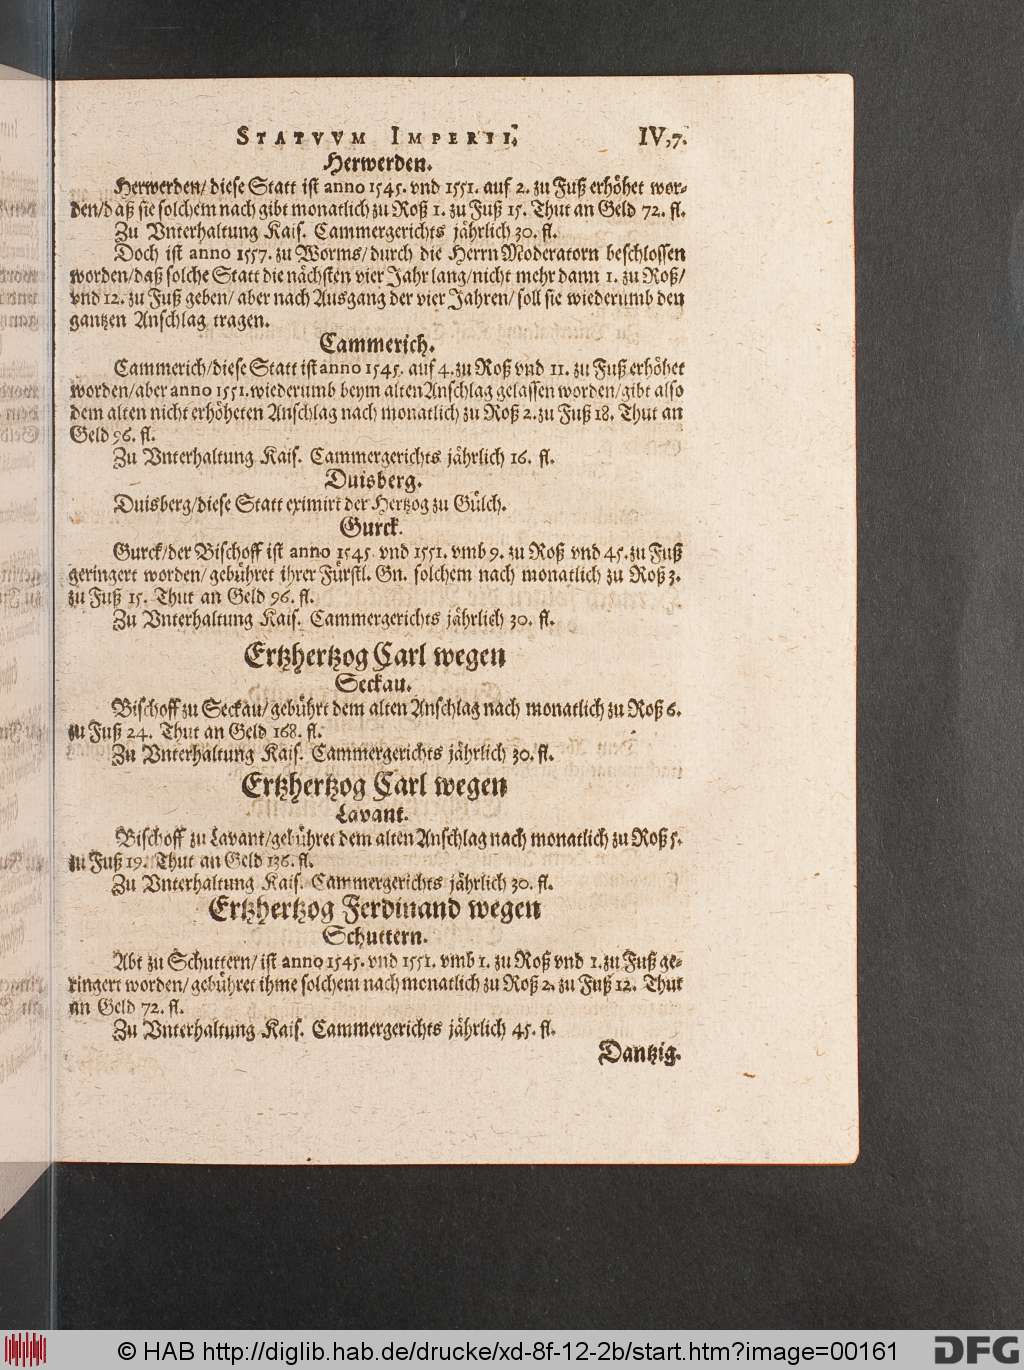 STATVVM IMPERII. IV,7.
Herwerden.
Herwerden/ diese Statt ist anno 1545. vnd 1551. auf 2. zu Fuß erhöhet wor-
den/daß sie solchem nach gibt monatlich zu Roß 1. zu Fuß 15. Thut an Geld 72. fl.
Zu Vnterhaltung Kais. Cammergerichts jährlich 30. fl.
Doch ist anno 1557. zu Worms/ durch die Herrn Moderatorn beschlossen
worden/daß solche Statt die nächsten vier Jahr lang/nicht mehr dann 1. zu Roß/
vnd 12. zu Fuß geben/ aber nach Ausgang der vier Jahren/ soll sie wiederumb den
gantzen Anschlag tragen.
Cammerich.
Cammerich/diese Statt ist anno 1545. auf 4. zu Roß vnd 11. zu Fuß erhöhet
worden/aber anno 1551. wiederumb beym alten Anschlag gelassen worden/gibt also
dem alten nicht erhöheten Anschlag nach monatlich zu Roß 2. zu Fuß 18. Thut an
Geld 96. fl.
Zu Vnterhaltung Kais. Cammergerichts jährlich 16. fl.
Duisberg.
Duisberg/diese Statt eximirt der Hertzog zu Gülch.
Gurck.
Gurck/der Bischoff ist anno 1545 vnd 1551. vmb 9. zu Roß vnd 45. zu Fuß
geringert worden/ gebühret ihrer Fürstl. Gn. solchem nach monatlich zu Roß 3.
zu Fuß 15. Thut an Geld 96. fl.
Zu Vnterhaltung Kais. Cammergerichts jährlich 30. fl.
Ertzhertzog Carl wegen
Seckau.
Bischoff zu Seckau/ gebührt dem alten Anschlag nach monatlich zu Roß 6.
zu Fuß 24. Thut an Geld 168. fl.
Zu Vnterhaltung Kais. Cammergerichts jährlich 30. fl.
Ertzhertzog Carl wegen
Lavant.
Bischoff zu Lavant/gebühret dem alten Anschlag nach monatlich zu Roß 5.
zu Fuß 19. Thut an Geld 136. fl.
Zu Vnterhaltung Kais. Cammergerichts jährlich 30. fl.
Ertzhertzog Ferdinand wegen
Schuttern.
Abt zu Schuttern/ ist anno 1545. vnd 1551. vmb 1. zu Roß vnd 1. zu Fuß ge-
ringert worden/ gebühret ihme solchem nach monatlich zu Roß 2. zu Fuß 12. Thut
an Geld 72. fl.
Zu Vnterhaltung Kais. Cammergerichts jährlich 45. fl.
Dantzig.
© HAB http://diglib.hab.de/drucke/xd-8f-12-2b/start.htm?image=00161 DFG